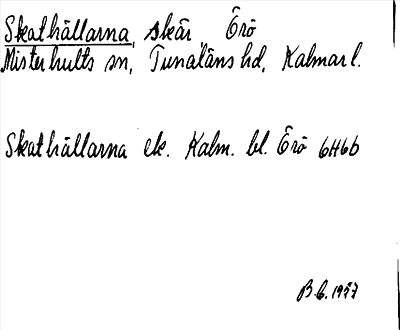 Skathällarna, skär, Örö
Misterhults sn, Tunaläns hd, Kalmar l.
Skathällarna ek. Kalm. bl. Örö 6H6b
1977